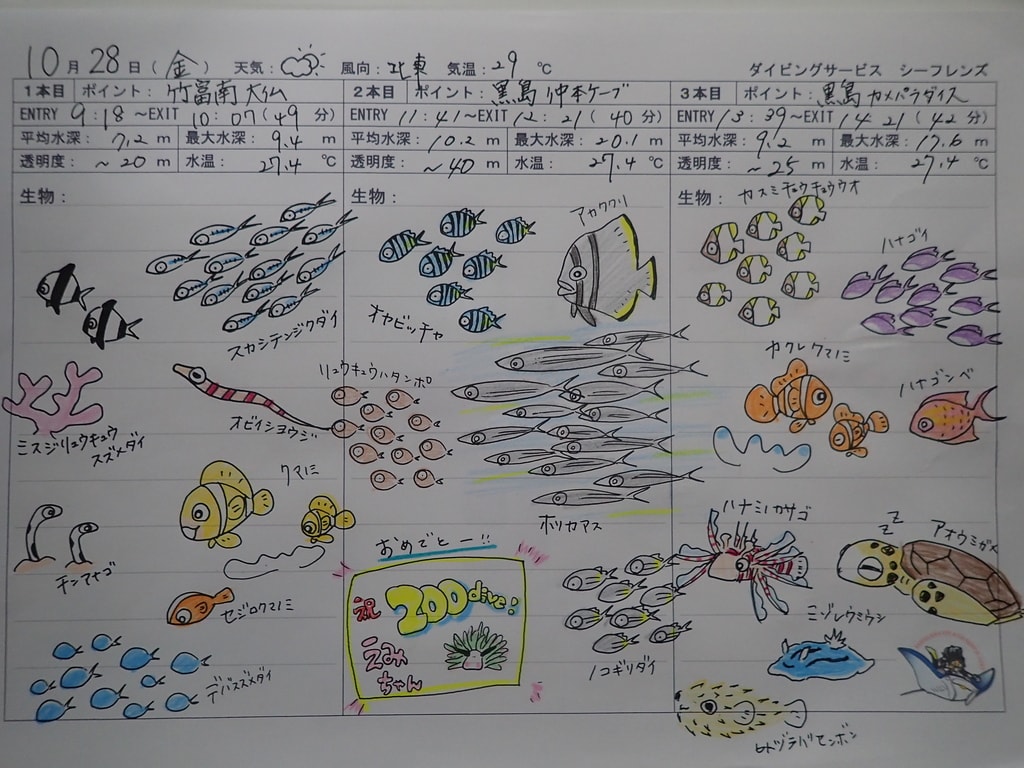 10月28日(金) 天気: 風向:北東 気温:29℃ ダイビングサービス シーフレンズ
1本目 ポイント: 竹富南 大仏
ENTRY 9:18~EXIT 10:07(49分)
平均水深: 7.2m 最大水深: 9.4m
透明度: ~20m 水温: 27.4℃
生物:
スカシテンジクダイ
ミスジリュウキュウ
スズメダイ
オビイショウジ
クマノミ
チンアナゴ
セジロクマノミ
デバスズメダイ
2本目 ポイント: 黒島 仲本ケーブ
ENTRY 11:41~EXIT 12:21(40分)
平均水深: 10.2m 最大水深: 20.1m
透明度: ~40m 水温: 27.4℃
生物:
アカククリ
オヤビッチャ
リュウキュウハタンポ
ホソカマス
おめでとー!!
祝 200dive!
えみ
ちゃん
ノコギリダイ
3本目 ポイント: 黒島 カメパラダイス
ENTRY 13:39~EXIT 14:21(42分)
平均水深: 9.2m 最大水深: 17.6m
透明度: ~25m 水温: 27.4℃
生物:
カスミチョウチョウウオ
ハナゴイ
カクレクマノミ
ハナゴンベ
ハナミノカサゴ
z z z
アオウミガメ
ミゾレウミウシ
ヒトヅラハリセンボン